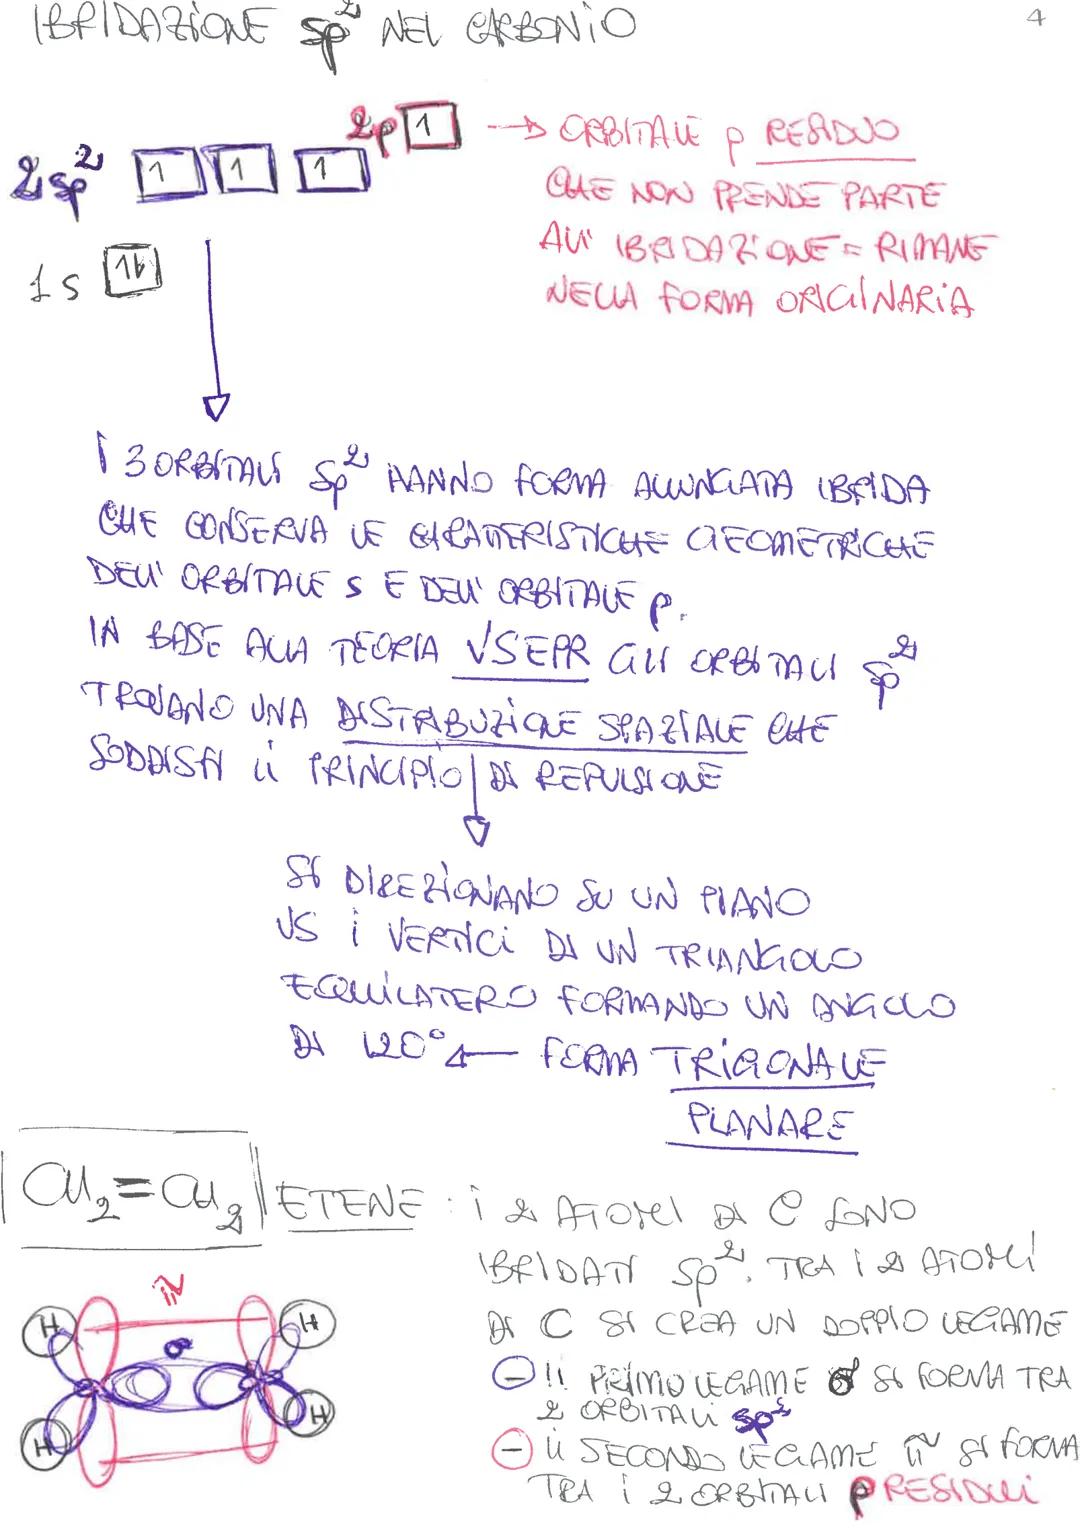 IBRIDAZIONE sp² NEL CARBONIO
4
2p 1 → ORBITALE p RESIDUO
2sp² 1 1 1
CHE NON PRENDE PARTE
ALL' IBRIDAZIONE = RIMANE
1s 1↓
NELLA FORMA ORIGINARIA
I 3 ORBITALI sp² HANNO FORMA ALLUNGATA IBRIDA
CHE CONSERVA LE CARATTERISTICHE GEOMETRICHE
DELL' ORBITALE S E DELL' ORBITALE p.
IN BASE ALLA TEORIA VSEPR GLI ORBITALI sp²
TROVANO UNA DISTRIBUZIONE SPAZIALE CHE
SODDISFI IL PRINCIPIO DI REPULSIONE
SI DIREZIONANO SU UN PIANO
VS I VERTICI DI UN TRIANGOLO
EQUILATERO FORMANDO UN ANGOLO
DI 120° ← FORMA TRIGONALE
PLANARE
CH₂=CH₂ ETENE : I 2 ATOMI DI C SONO
IBRIDATI sp². TRA I 2 ATOMI
DI C SI CREA UN DOPPIO LEGAME
- IL PRIMO LEGAME σ SI FORMA TRA
2 ORBITALI sp²
- IL SECONDO LEGAME π SI FORMA
TRA I 2 ORBITALI p RESIDUI
π
H H
σ
H H